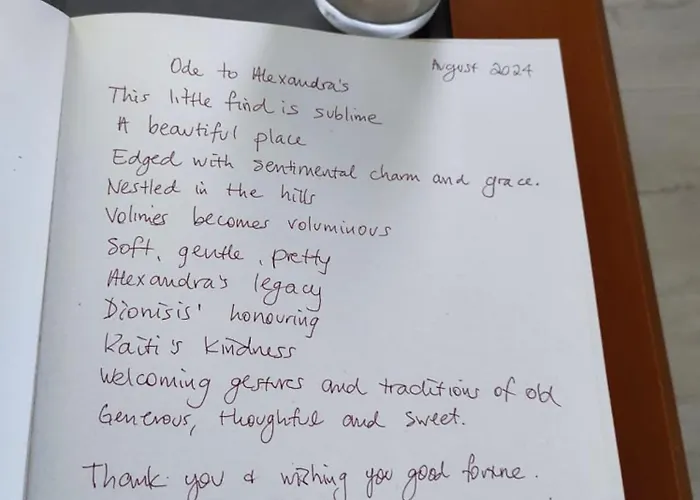 August 2024
Ode to Alexandra's
This little find is sublime
A beautiful place
Edged with sentimental charm and grace.
Nestled in the hills
Volimies becomes voluminous
Soft, gentle, pretty
Alexandra's legacy
Dionisis' honouring
Kaiti's kindness
Welcoming gestures and traditions of old
Generous, thoughtful and sweet.
Thank you & wishing you good fortune.